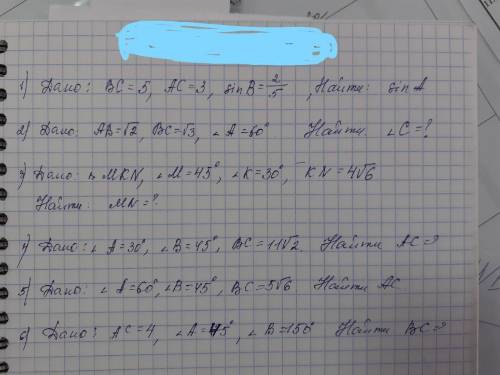 1) Дано: BC = 5, AC = 3, sin B = 2/5, Найти: sin A
2) Дано: AB = √2, BC = √3, ∠A = 60° Найти: ∠C = ?
3) Дано: ▵ MKN, ∠M = 45°, ∠K = 30°, KN = 4√6
Найти: MN = ?
4) Дано: ∠A = 30°, ∠B = 45°, BC = 11√2. Найти AC = ?
5) Дано: ∠A = 60°, ∠B = 45°, BC = 5√6 Найти AC
6) Дано: AC = 4, ∠A = 45°, ∠B = 150° Найти BC = ?